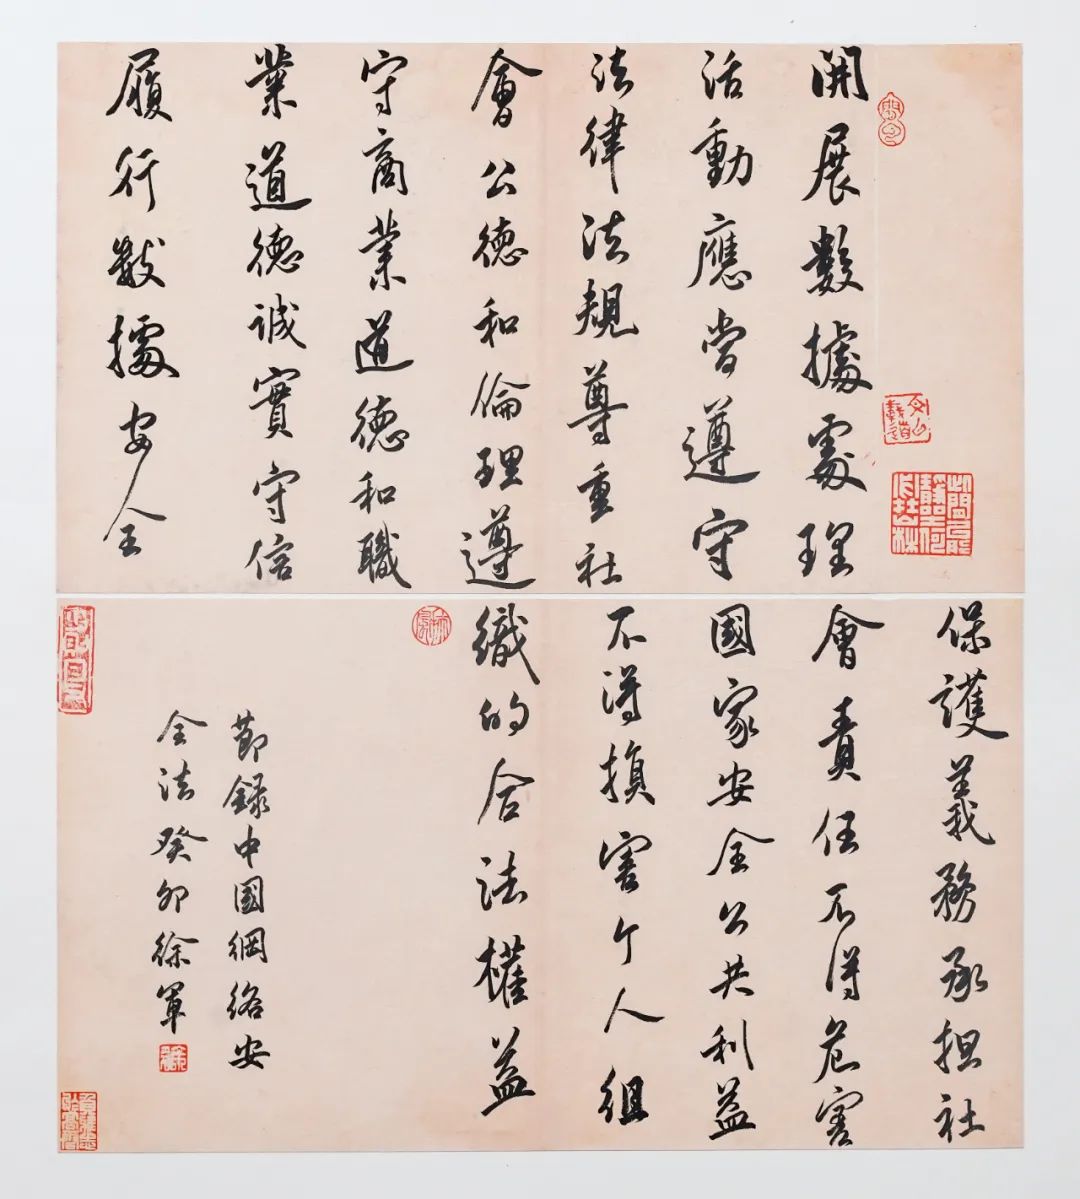 開展數據處理
活動應當遵守
法律法規尊重社
會公德和倫理遵
守商業道德和職
業道德誠實守信
履行數據安全
保護義務承担社
會責任不得危害
國家安全公共利益
不得損害个人組
織的合法權益
節錄中國網絡安
全法癸卯徐軍